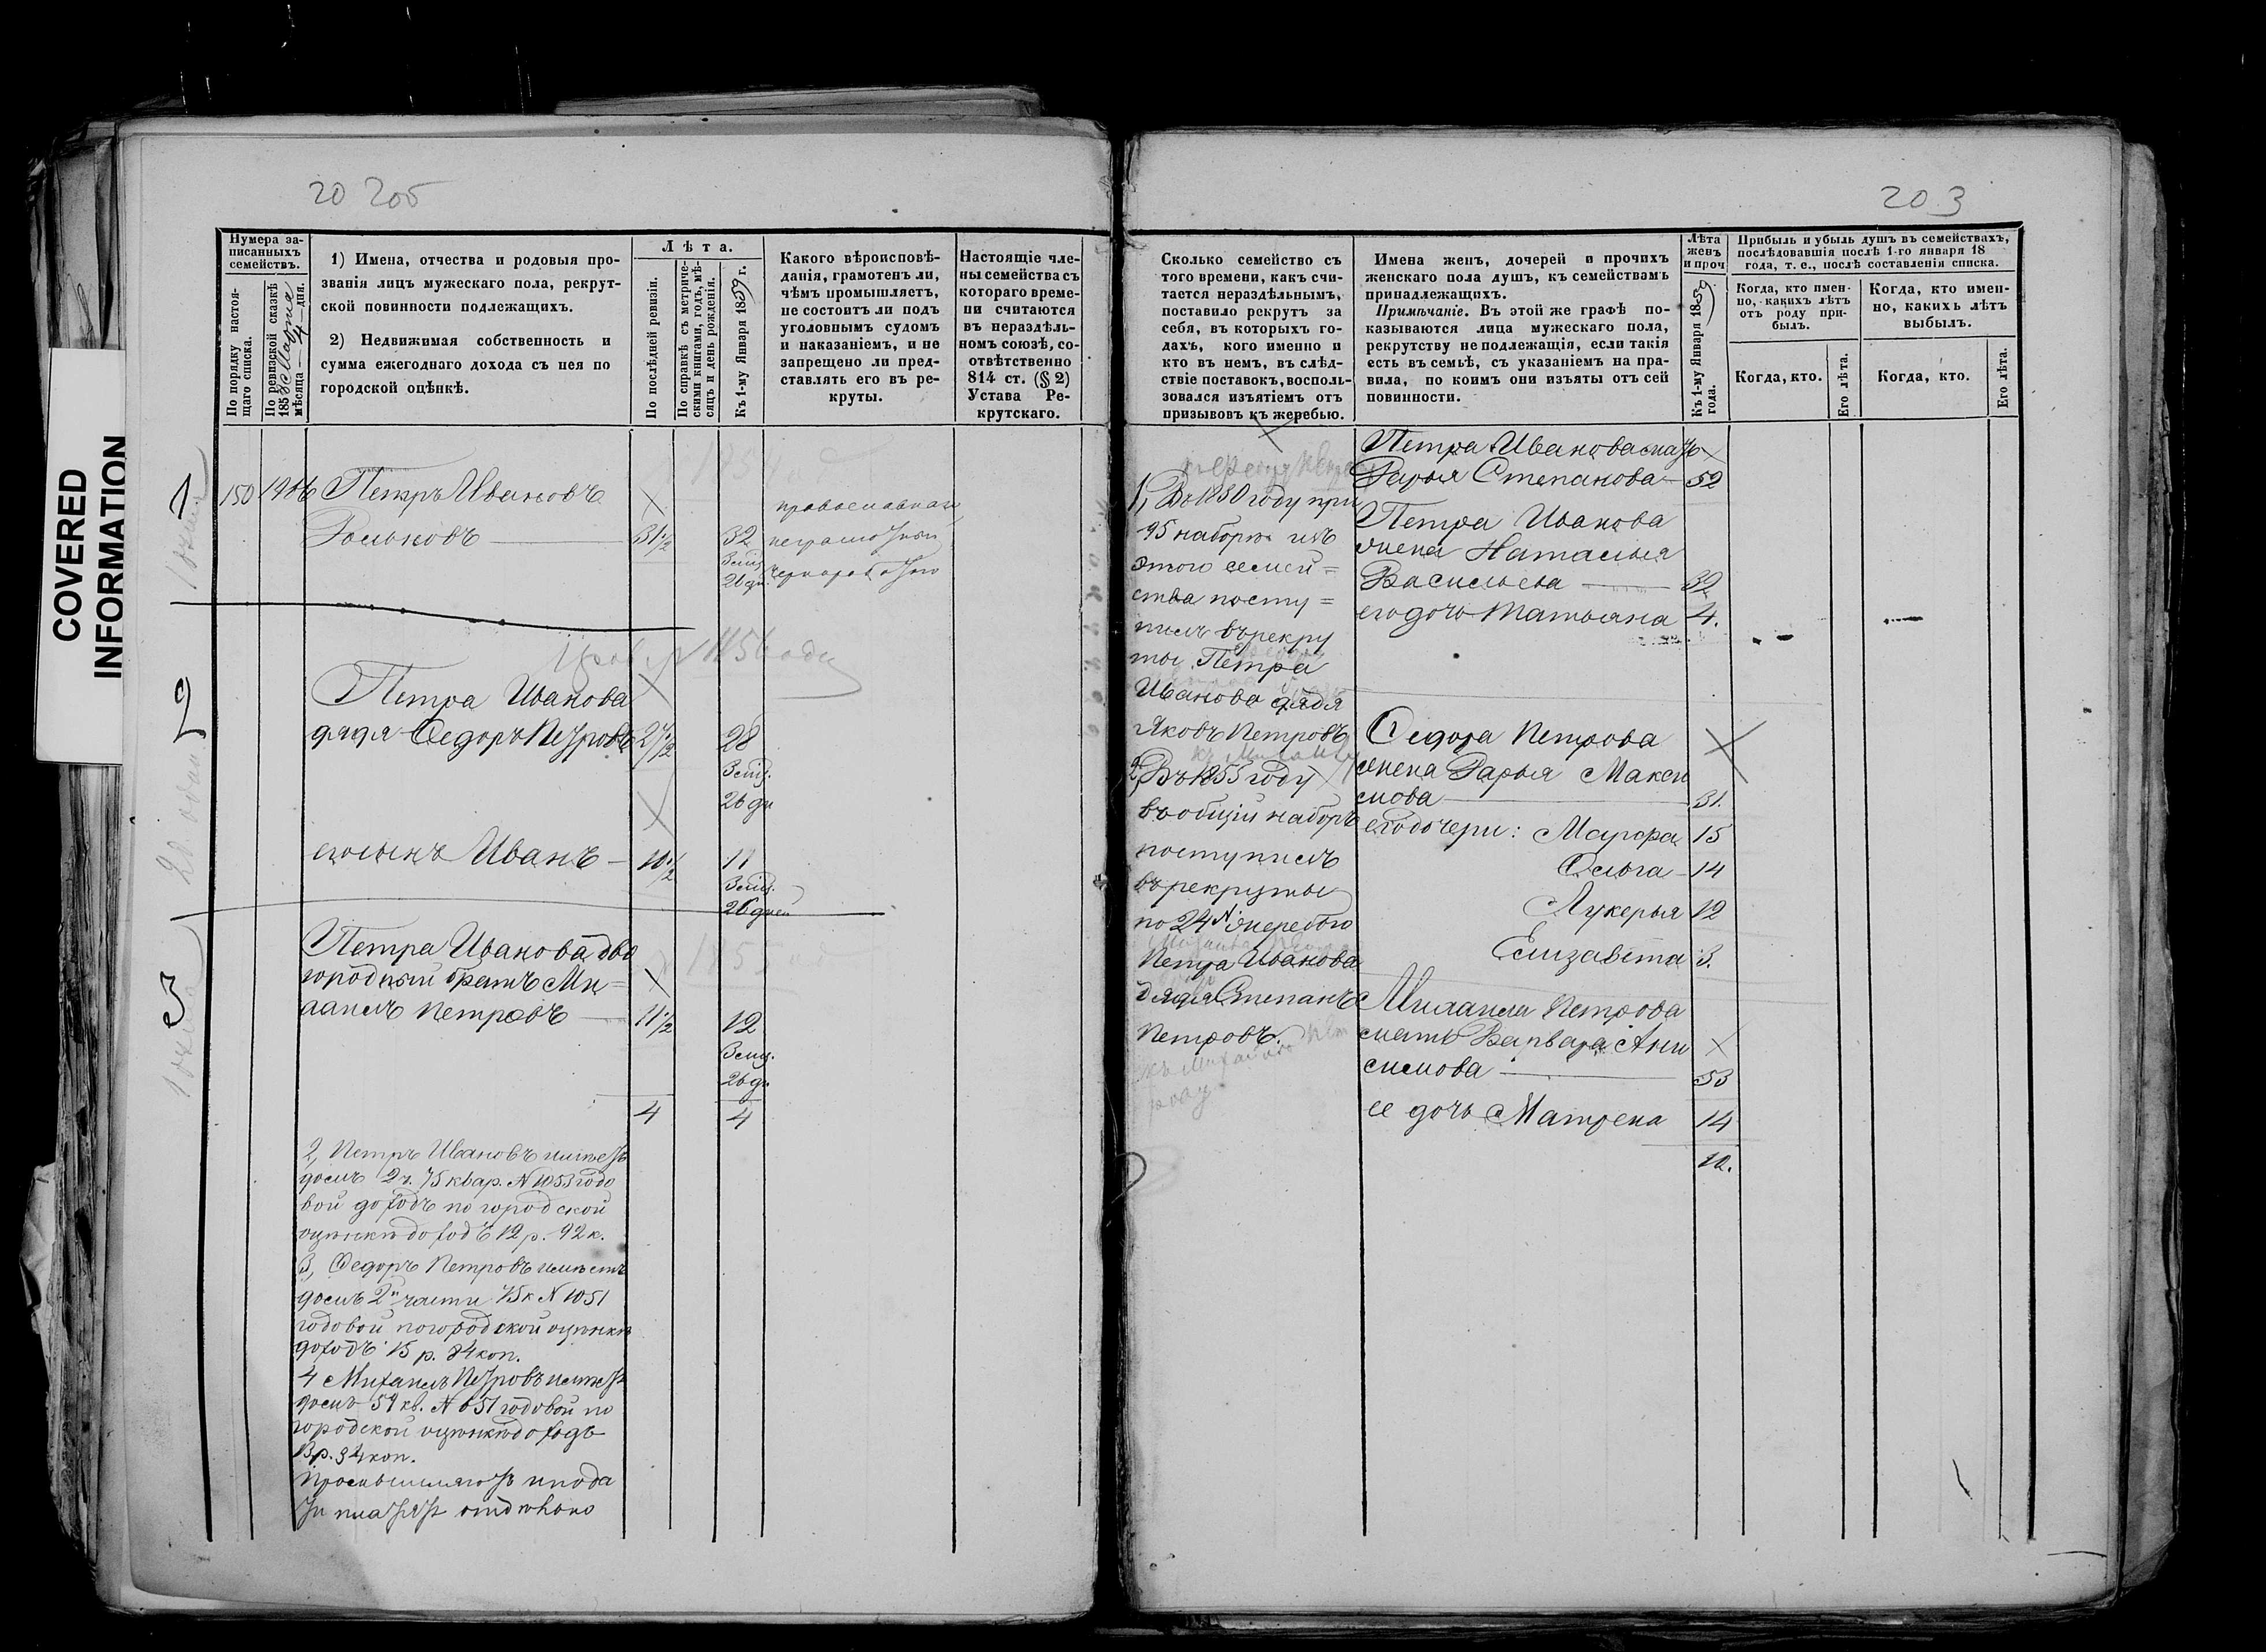 20 205
Нумера за-
писанныхъ
семействъ.
По порядку настоя-
щаго списка.
По ревизской сказкѣ
1858 Марта
мѣсяца — 4 — дня.
1) Имена, отчества и родовыя про-
званія лицъ мужескаго пола, рекрут-
ской повинности подлежащихъ.
2) Недвижимая собственность и
сумма ежегоднаго дохода съ нея по
городской оцѣнкѣ.
Лѣта.
По послѣдней ревизіи.
По справкѣ съ метриче-
скими книгами, годъ, мѣ-
сяцъ и день рожденія.
Къ 1-му Января 1859 г.
Какого вѣроисповѣ-
данія, грамотенъ ли,
чѣмъ промышляетъ,
не состоитъ ли подъ
уголовнымъ судомъ
и наказаніемъ, и не
запрещено ли пред-
ставлять его въ ре-
круты.
Настоящіе чле-
ны семейства съ
котораго време-
ни считаются
въ нераздѣль-
номъ союзѣ, со-
отвѣтственно
814 ст. (§ 2)
Устава Ре-
крутскаго.
COVERED
INFORMATION
1
150
Петръ Ивановъ
31 1/2
32
3 мѣц.
26 дн.
православнаго
неграмотный
чернорабочаго
2
Петра Иванова
дядя Федоръ Петровъ
27 1/2
28
3 мѣц.
26 дн
его сынъ Иванъ —
10 1/2
11
3 мѣц.
26 дней
3
Петра Иванова дво
юродный братъ Ми
хаилъ Петровъ
11 1/2
12
3 мц.
26 дн
4
4
2, Петръ Ивановъ имѣетъ
домъ 2 ч. 75 квар. N 1053 годо
вой доходъ по городской
оцѣнкѣ доходъ 12 р. 92 к.
3, Федоръ Петровъ имѣетъ
домъ 2й части 75 к N 1051
годовой по городской оцѣнкѣ
доходъ 15 р. 84 коп.
4 Михаилъ Петровъ имѣетъ
домъ 54 кв. N 651 годовой по
городской оцѣнкѣ доходъ
3 р. 34 коп.
и пода
ти платятъ отдѣльно
203
Сколько семейство съ
того времени, какъ счи-
тается нераздѣльнымъ,
поставило рекрутъ за
себя, въ которыхъ го-
дахъ, кого именно и
кто въ немъ, въ слѣд-
ствіе поставокъ, восполь-
зовался изъятіемъ отъ
призывовъ къ жеребью.
Имена женъ, дочерей и прочихъ
женскаго пола душъ, къ семействамъ
принадлежащихъ.
Примѣчаніе. Въ этой же графѣ по-
казываются лица мужескаго пола,
рекрутству не подлежащія, если такія
есть въ семьѣ, съ указаніемъ на пра-
вила, по коимъ они изъяты отъ сей
повинности.
Лѣта
женъ
и проч
Къ 1-му Января 1859
года.
Прибыль и убыль душъ въ семействахъ,
послѣдовавшія послѣ 1-го января 18
года, т. е., послѣ составленія списка.
Когда, кто имен-
но, какихъ лѣтъ
отъ роду при-
былъ.
Когда, кто имен-
но, какихъ лѣтъ
выбылъ.
Когда, кто.
Его лѣта.
Когда, кто.
Его лѣта.
1, Въ 1830 году при
95 наборѣ изъ
этого семей=
ства посту=
пилъ въ рекру
ты Петра
Иванова дядя
Яковъ Петровъ
2, Въ 1855 году
въ общій наборъ
поступилъ
въ рекруты
по 24 N жеребью
Петра Иванова
дядя Степанъ
Петровъ.
Петра Иванова мать
Дарья Степанова 52
Петра Иванова
жена Наталья
Васильева 32
его дочь Татьяна 4.
Федора Петрова
жена Дарья Макси
мова 31.
его дочери: Марфа 15
Ольга 14
Лукерья 12
Елизавета 3.
Михаила Петрова
мать Варвара Ани
симова 53
ее дочь Матрена 14
10.